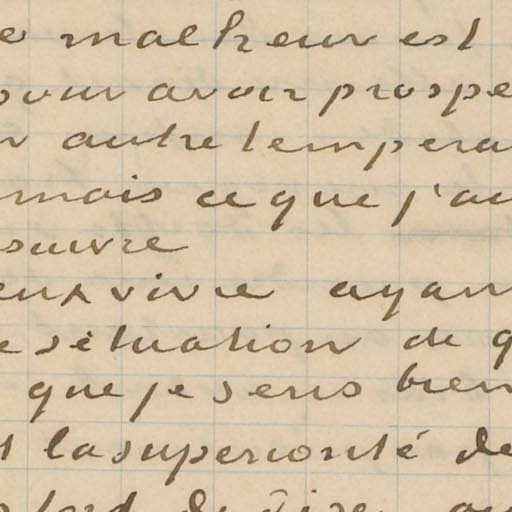 e malheur est
pour avoir prospe
autre tempera
mais ce que j'ai
suivre
eux vivre ayan
e situation de q
que je sens bien
la superiorité de